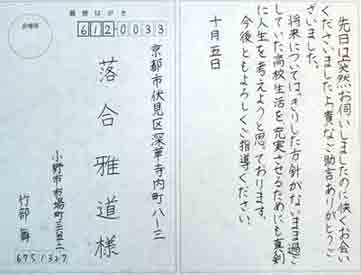 郵便はがき
612-0033
京都市伏見区深草寺内町八-三
落合雅道様
小野市市場町三五二
竹部舞
6751327
先日は突然お伺いしましたのに快くお会い
くださいました上貴重なご助言ありがとうご
ざいました。
将来については、きりした方針がないまま過ご
していた高校生活を充実させるためにも真剣
に人生を考えようと思っております。
今後ともよろしくご指導ください。
十月五日